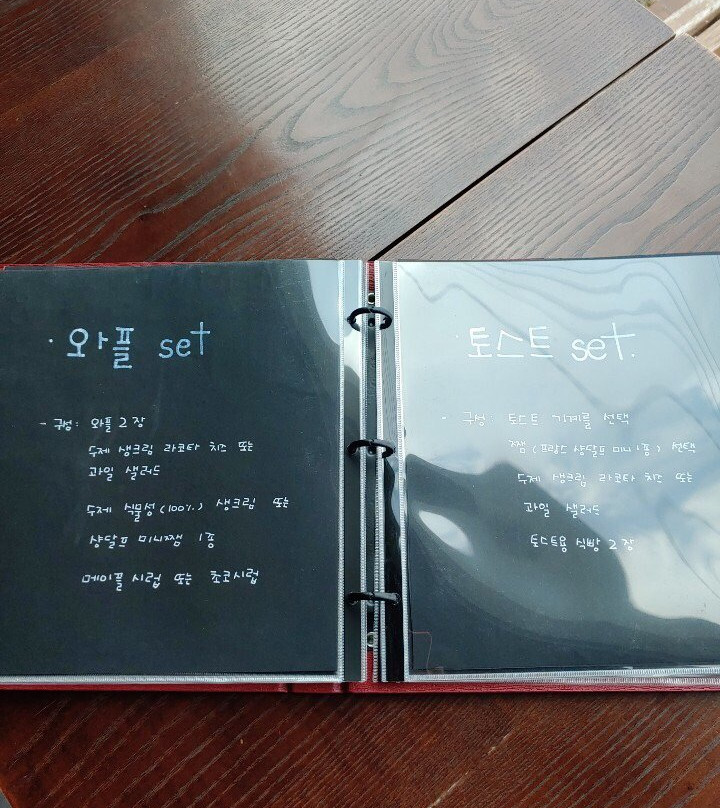 · 와플 set
- 구성: 와플 2장
수제 생크림 라코타 치즈 또는
과일 샐러드
수제 식물성(100%) 생크림 또는
샹달프 미니쨈 1종
메이플 시럽 또는 초코시럽
· 토스트 set.
- 구성: 토스트 기계를 선택
쨈(프랑스 샹달프 미니 1종) 선택
수제 생크림 라코타 치즈 또는
과일 샐러드
토스트용 식빵 2장